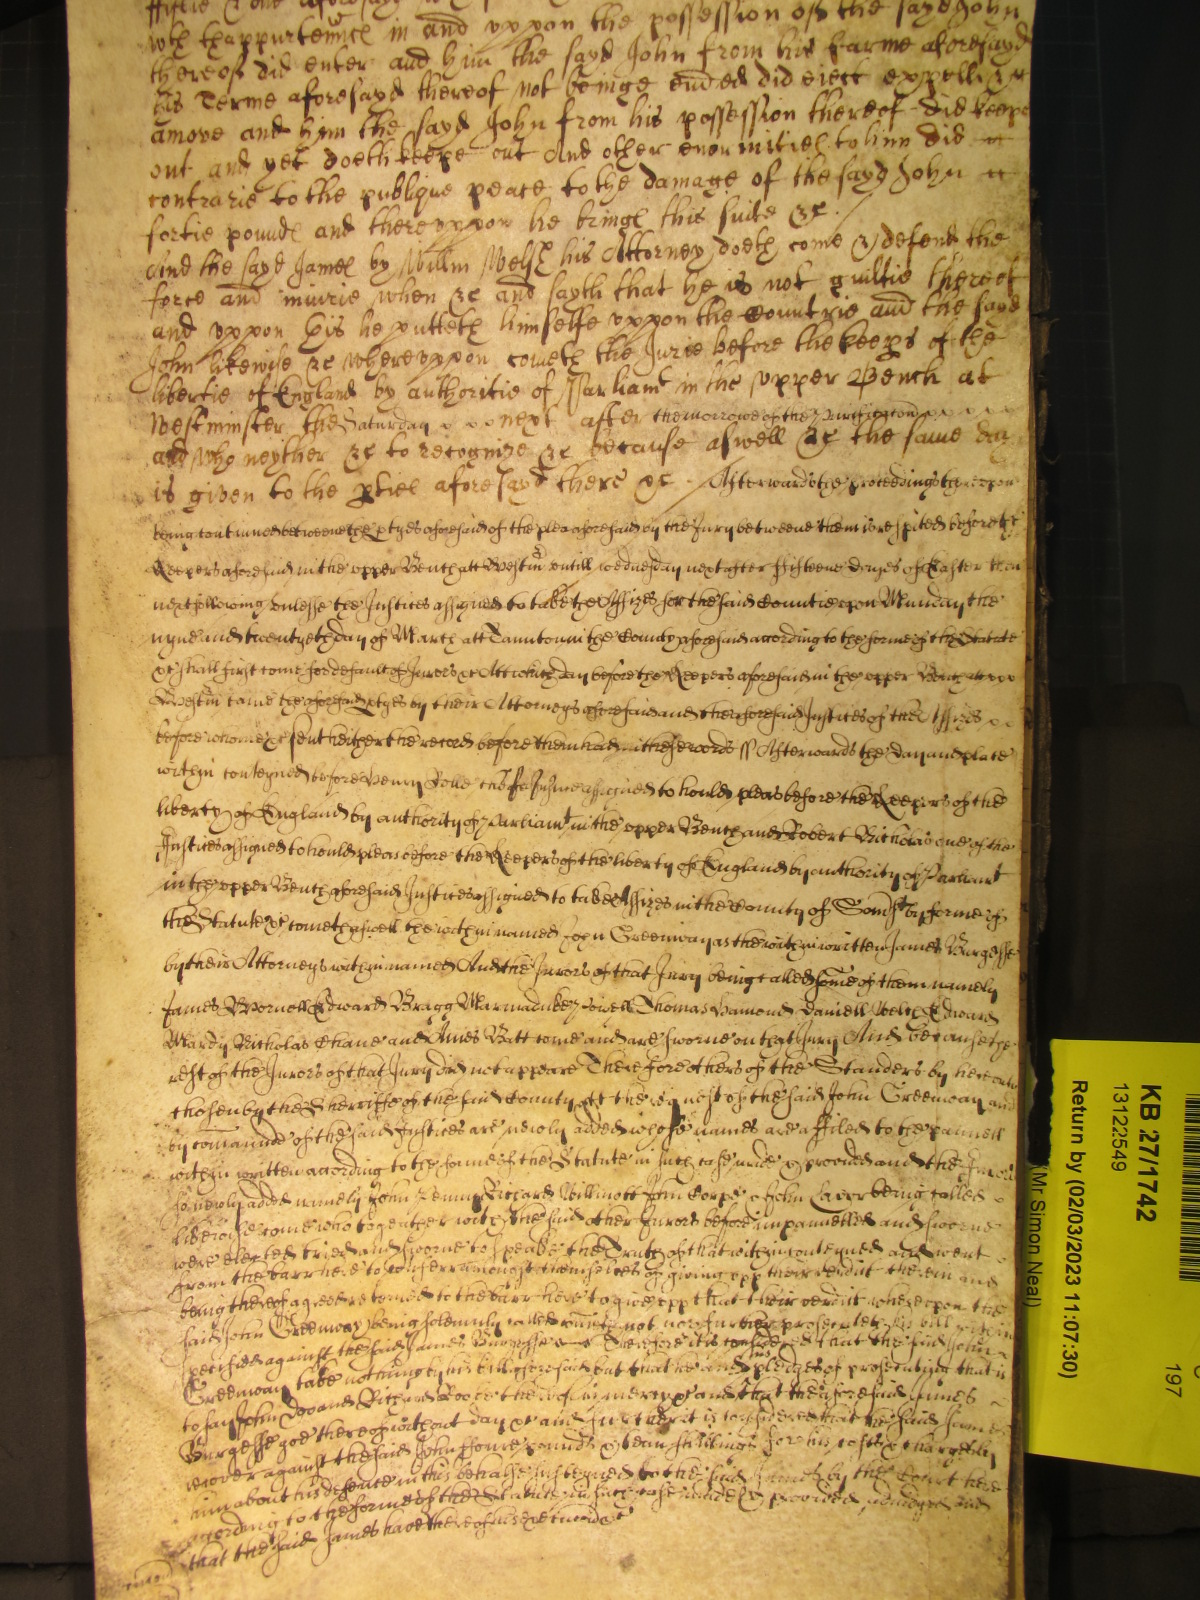 wth thappurtennces in and uppon the possession of the sayd John
thereof did enter and him the sayd John from his farme aforesayd
his Terme aforesayd thereof not beinge ended did eiect expell &
amove and hym the sayd John from his possession thereof did keepe
out and yet doeth keepe out And other enormities to him did
contrarie to the publique peace to the damage of the sayd John
fortie pounds and thereuppon he brings this suite &c.
And the sayd James by Willm Welsh his Attorney doeth come & defend the
force and iniurie when &c and sayth that he is not guiltie thereof
and uppon this he putteth himselfe uppon the Countrie and the sayd
John likewise &c whereuppon cometh the Jurie before the keeps of the
libertie of England by authoritie of Parliamt in the Upper Bench at
Westminster the Saturday next after the morrowe of the Purification
and who neyther &c to recognize &c because aswell &c the same day
is given to the pties aforesayd there &c. Afterwards the proceedings thereupon
being continued betweene the ptyes aforesaid of the plea aforesaid by the Jury betweene them is respited before the
Keepers aforesaid in the upper Bench att Westm untill wednesday next after fifteene dayes of Easter then
next following unlesse the Justices assigned to take the Assizes for the said Countie upon Munday the
nyne and twentyeth day of March att Taunton in the County aforesaid according to the forme of the Statute
&c shall first come for default of Jurors &c Att which day before the Keepers aforesaid in the upper Bench att
Westm came the aforesaid ptyes by their Attorneys aforesaid and the aforesaid Justices of the Assizes
before whome &c sent hether the record before them had in these words ss Afterwards the day and place
within conteyned before Henry Rolle cheife Justice assigned to hould pleas before the Keepers of the
liberty of England by authority of Parliamt in the upper Bench and Robert Nicholas one of the
Justices assigned to hould pleas before the Keepers of the liberty of England by authority of Parliamt
in the upper Bench aforesaid Justices assigned to take Assizes in the County of Somst by forme of
the Statute &c cometh aswell the within named John Greenway as the within written James Burgesse
by their Attorneys within named And the Jurors of that Jury being called some of them namely
James Edward Bragg Marmaduke Jewell Thomas Hamond Daniell Welch Edward
Mardy Nicholas Chane and Amos Batt come and are sworne on that Jury And because the
rest of the Jurors of that Jury did not appeare Therefore others of the Standers by hereunto
chosen by the Sherriffe of the said County att the request of the said John Greenway and
by command of the said Justices are newly added whose names are affiled to the pannell
within written according to the forme of the Statute in such case made & provided and the Jurors
so newly added namely John Richard Willmott John Corpe John Laver being called
likewise come who together with the said other Jurors before impannelled and sworne
were elected tried and sworne to speake the Truth of that within conteyned and went
from the barr here to conferr amongst themselves of giving upp their verdict therein and
being thereof agreed returned to the barr here to give upp that their verdict whereupon the
said John Greenway being solemnly called cometh not nor further prosecuteth his bill within
specified against the said James Burgesse Therefore it is considered that the said John
Greenway take nothing by his bill aforesaid but that he and his pledges of prosecuting that is
to say John Doo and Richard Roo be therefore in mercy &c and that the aforesaid James
Burgesse goe thereof without day &c and further it is considered that the said James
recover against the said John fowre pounds & shillings for his costs & charges by
him about his defence in this behalfe susteyned to the said James by the Court here
according to the forme of the Statute in such case made & provided adiudged And
that the said James have thereof his execucon &c
KB 27/1742
13122549
Return by (02/03/2023 11:07:30)
(Mr Simon Neal)
197